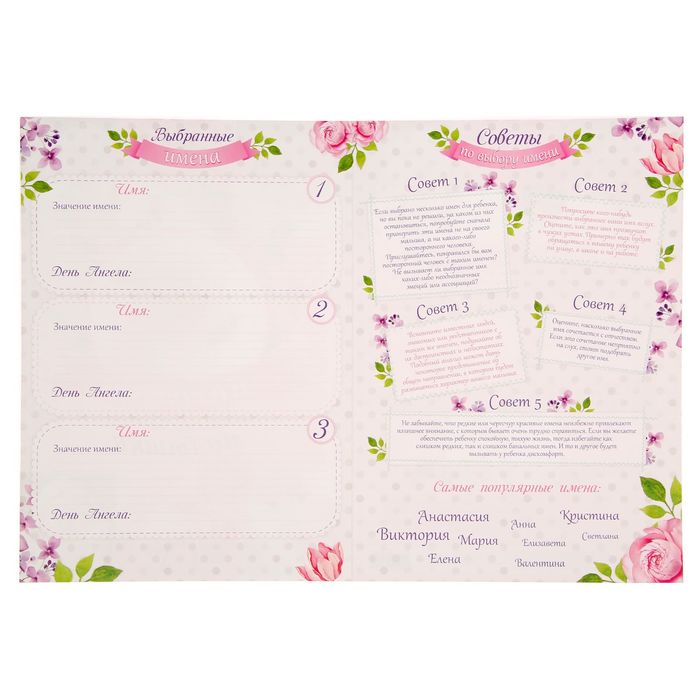 Выбранные
имена
Имя:
1
Значение имени:
День Ангела:
Имя:
2
Значение имени:
День Ангела:
Имя:
3
Значение имени:
День Ангела:
Советы
по выбору имени
Совет 1
Если выбрано несколько имен для ребенка,
но вы пока не решили, на каком из них
остановиться, попробуйте сначала
примерить эти имена не на своего
малыша, а на какого-либо
постороннего человека.
Прислушайтесь, понравился бы вам
посторонний человек с таким именем?
Не вызывает ли выбранное имя
каких-либо неоднозначных
эмоций или ассоциаций?
Совет 2
Попросите кого-нибудь
произнести выбранное вами имя вслух.
Оцените, как это имя прозвучит
в чужих устах. Примерно так будут
обращаться к вашему ребенку
на улице, в школе и на работе.
Совет 3
Вспомните известных людей,
знакомых или родственников с
таким же именем, подумайте об
их достоинствах и недостатках.
Подобный анализ может дать
некоторое представление об
общем направлении, в котором будет
развиваться характер вашего малыша.
Совет 4
Оцените, насколько выбранное
имя сочетается с отчеством.
Если это сочетание неприятно
на слух, стоит подобрать
другое имя.
Совет 5
Не забывайте, что редкие или чересчур красивые имена неизбежно привлекают
излишнее внимание, с которым бывает очень трудно справиться. Если вы желаете
обеспечить ребенку спокойную, тихую жизнь, тогда избегайте как
слишком редких, так и слишком банальных имен. И то и другое будет
вызывать у ребенка дискомфорт.
Самые популярные имена:
Анастасия
Анна
Кристина
Виктория
Мария
Елизавета
Светлана
Елена
Валентина